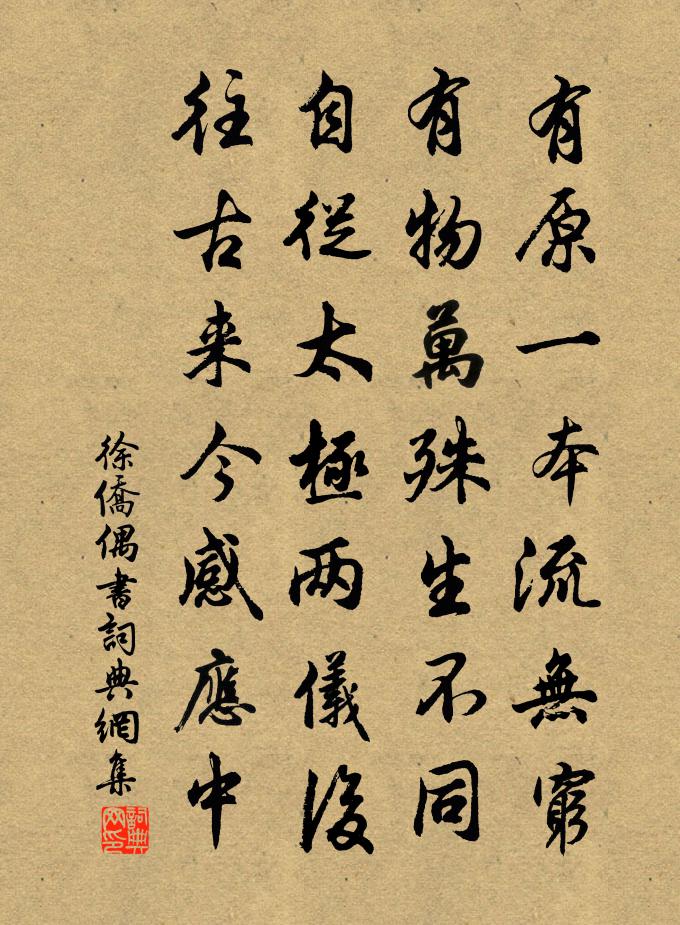 有原一本流無窮
有物萬殊生不同
自從太極两儀後
往古来今感應中
徐僑偶書詞典網集
詞典网印